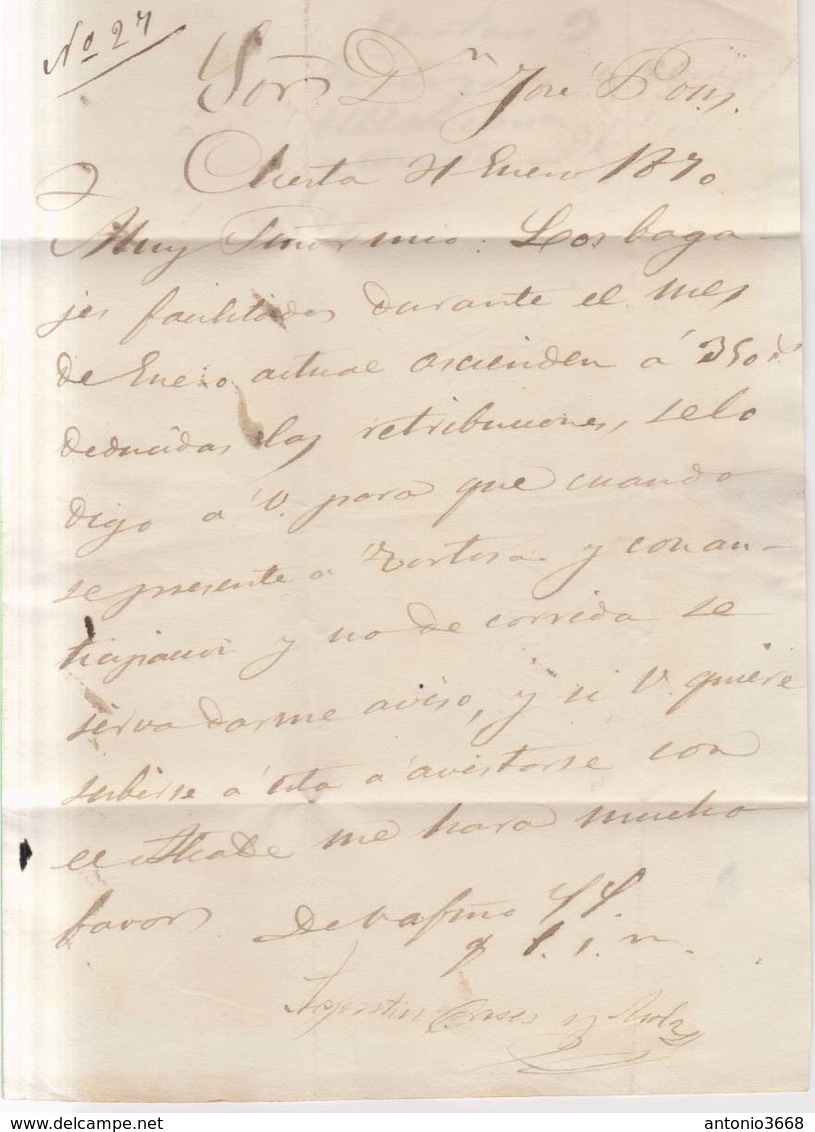 No 27
Sor Dn José Pons.
Cherta 31 Enero 1870
Muy Señor mio: Los baga-
jes facilitados durante el mes
de Enero actual ascienden á 350 rs
deducidas las retribuciones, selo
digo a V. para que cuando
se presente a Tortosa y con an-
ticipacion y no de corrida se
sirva darme aviso, y si V. quiere
subirse á esta á avistarse con
el Alcalde me hara mucho
favor De V afmo SS.
q. b. s. m.
Agustin y
antonio3668